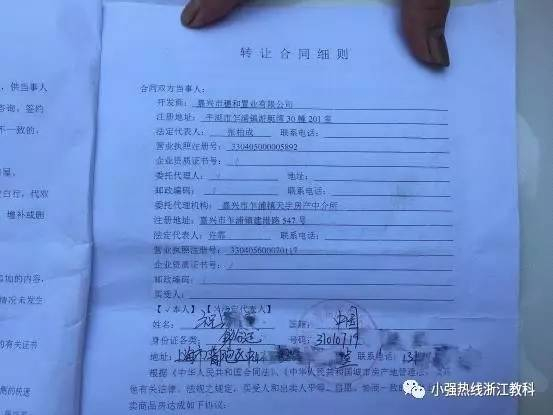 供当事人
咨询,签约
不一致的,
白行,代双
增补或删
添加的内容,
情况未发生
的有关证书
转让合同细则
合同双方当事人:
开发商:嘉兴市穗和置业有限公司
注册地址:平湖市乍浦镇游艇湾30幢201室
法定代表人:张柏成 联系电话:
营业执照注册号:330405000005892
企业资质证书号:/
委托代理人:/ 地址:
邮政编码:/ 联系电话:
委托代理机构:嘉兴市乍浦镇天宇房产中介所
注册地址:嘉兴市乍浦镇建港路547号
法定代表人:许霏 联系电话:
营业执照注册号:330405600070117
企业资质证书号:/
邮政编码:/
买受人:
【√本人】【法定代表人】
姓名:祝 国籍:中国
身份证各类:身份证 号码:3101019
地址:上海市 联系电话:13
根据《中华人民共和国合同法》、《中华人民共和国城市房产地管理法
他有关法律、法规之规定,买受人和出卖人平等、自愿、协商一致
卖商品房达成如下协议:
小强热线浙江教科